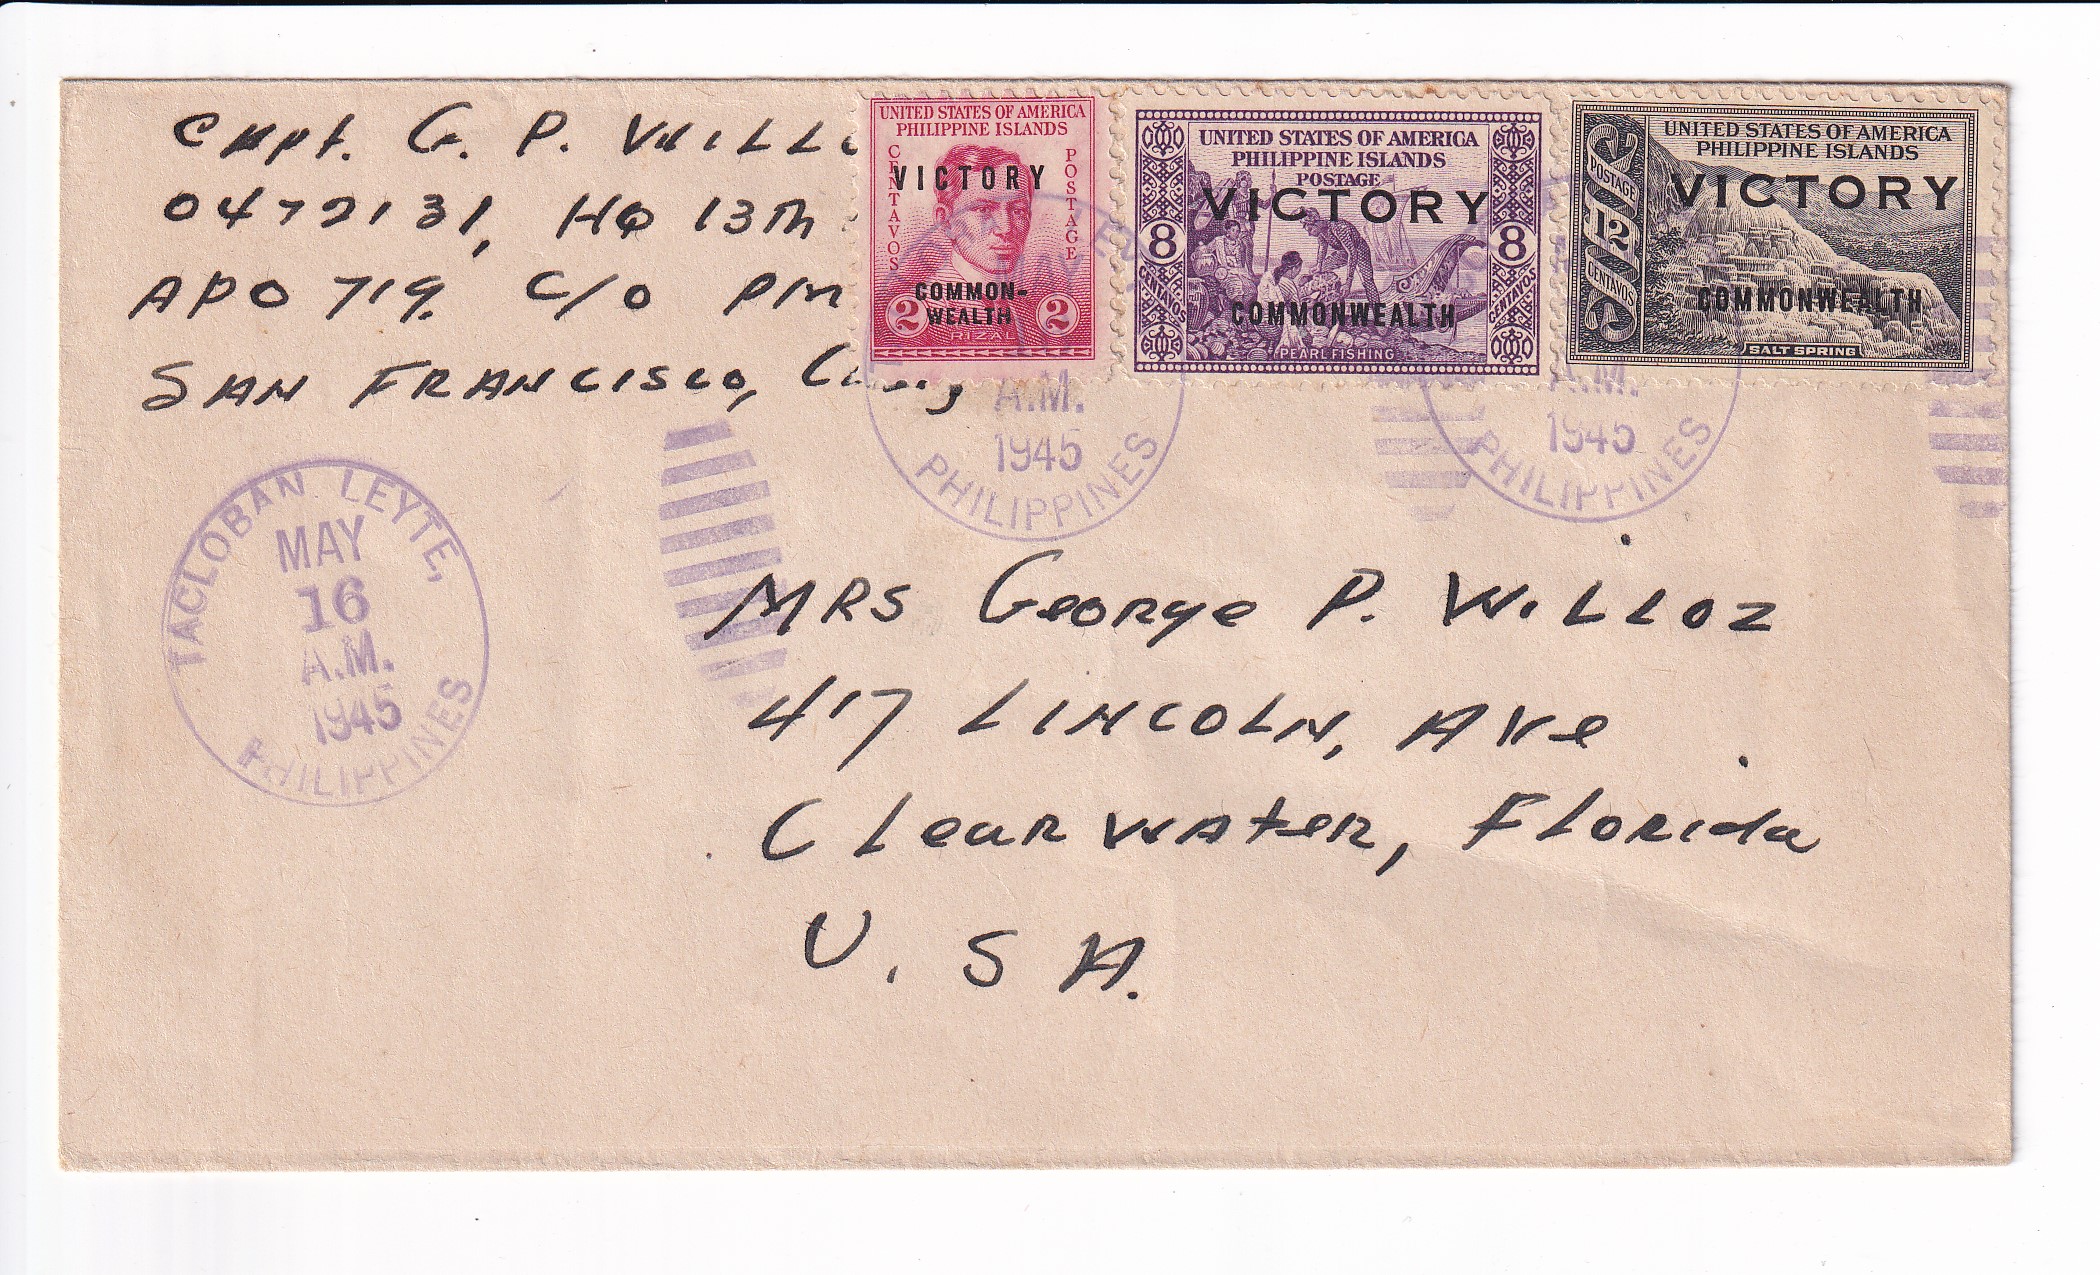 Capt. G. P. Will
0472131, HQ 13th
APO 719. C/O PM
SAN FRANCISCO,
UNITED STATES OF AMERICA
PHILIPPINE ISLANDS
CENTAVOS
POSTAGE
VICTORY
COMMON-
WEALTH
2 2
RIZAL
UNITED STATES OF AMERICA
PHILIPPINE ISLANDS
POSTAGE
VICTORY
8 8
CENTAVOS CENTAVOS
COMMONWEALTH
PEARL FISHING
UNITED STATES OF AMERICA
PHILIPPINE ISLANDS
POSTAGE
VICTORY
12
CENTAVOS
COMMONWEALTH
SALT SPRING
A.M.
1945
PHILIPPINES
A.M.
1945
PHILIPPINES
TACLOBAN LEYTE,
MAY
16
A.M.
1945
PHILIPPINES
MRS George P. WILLOZ
417 LINCOLN, AVe
Clearwater, Florida
U. S A.